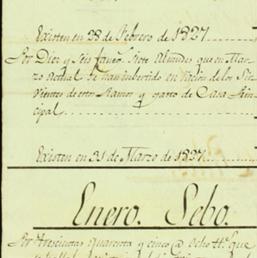 Existen en 28 de Febrero de 1837
Por Diez y Seis fanes. Siete Almudes que en Mar-
zo actual se han invertido en racion de los Sir-
vientes de estos Ramos y gasto de Casa Prin-
cipal
Existen en 31 de Marzo de 1837.
Enero. Sebo.
Por trescientas quarenta y cinco @ Ocho lls. que